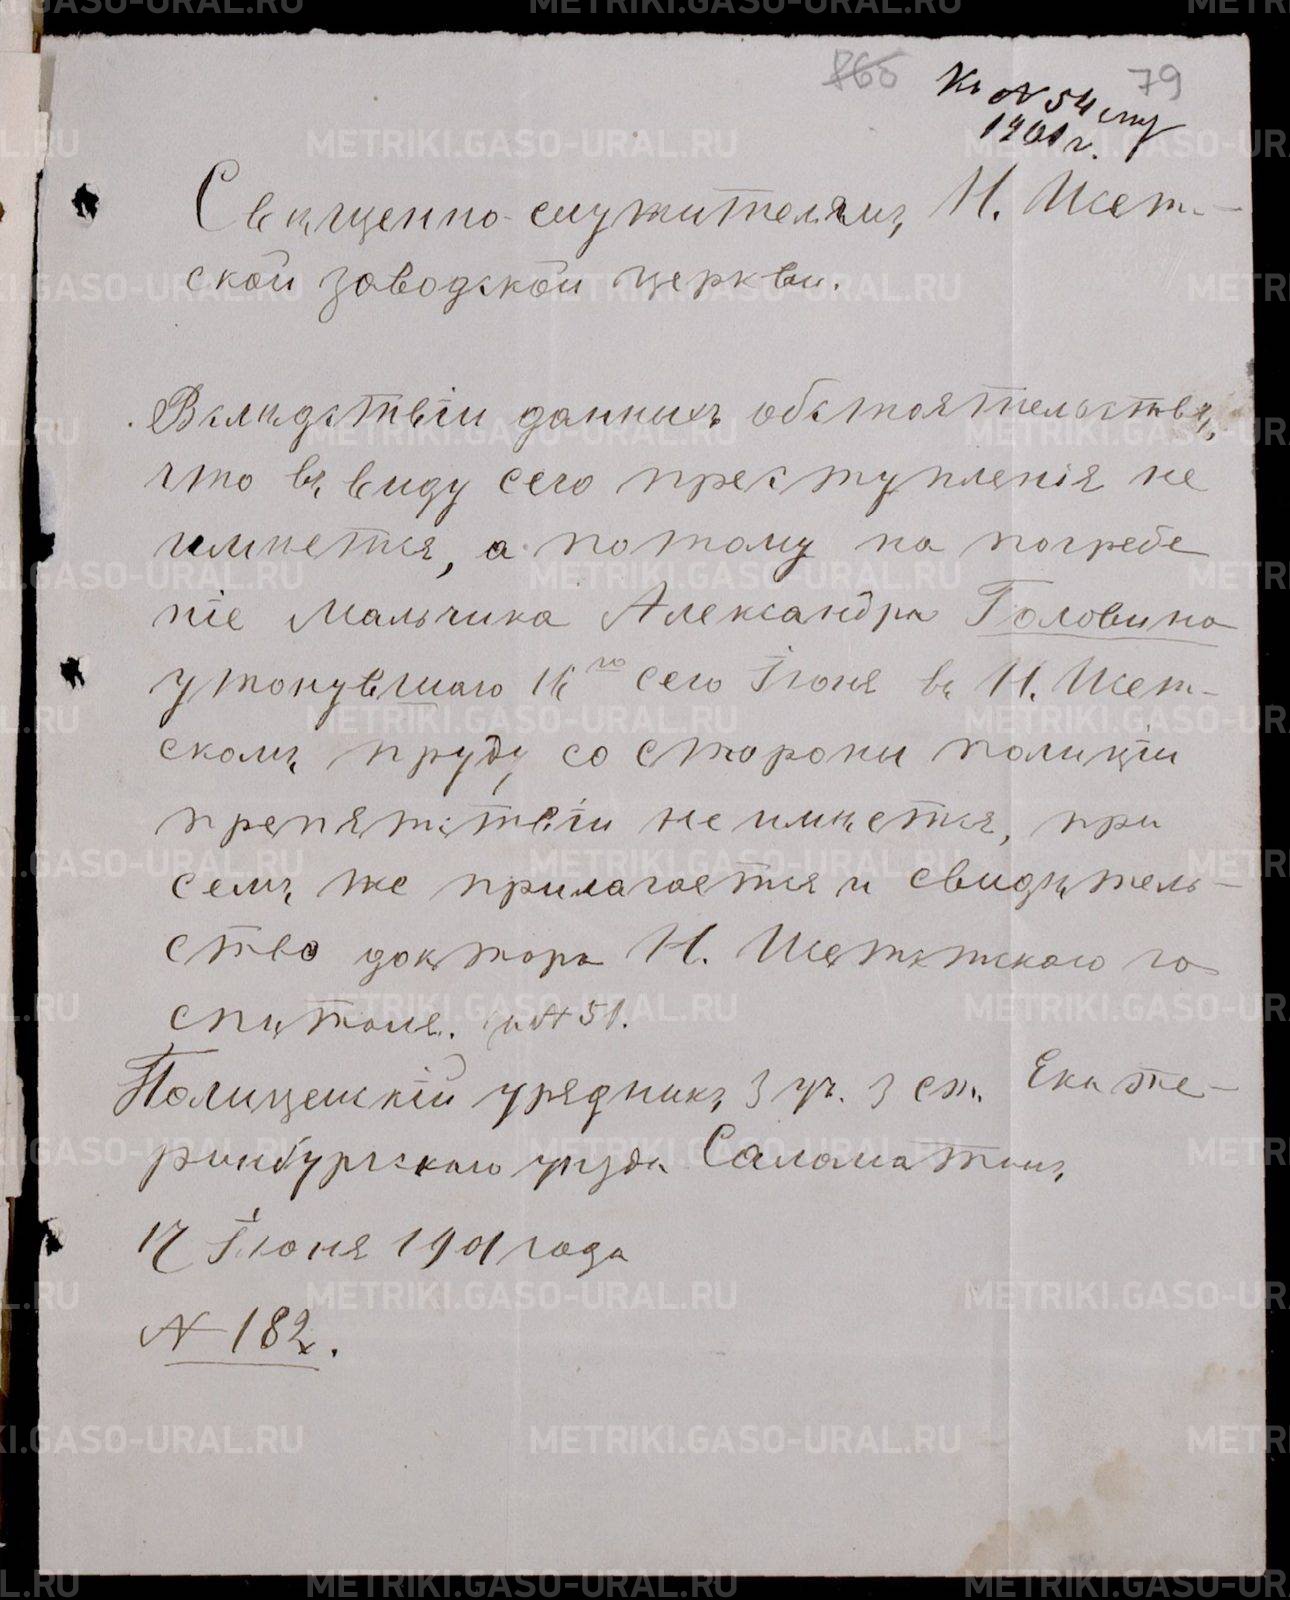 866 79
Къ № 54 
1901 г.
Священно-служителямъ Н. Исет-
ской заводской церкви.
Вслѣдствіи данныхъ обстоятельствъ,
что въ виду сего преступленія не
имѣется, а потому на погребе
ніе мальчика Александра Головина
утонувшаго 16го сего Іюня въ Н. Исет-
скомъ пруду со стороны полиціи
препятствіи не имѣется, при
семъ же прилагается и свидѣтель-
ство доктора Н. Исетскаго го
спиталя. № 51.
Полицейскій урядникъ 3 уч. 3 ст. Екате-
ринбургскаго уѣзда Саломатинъ
17 Іюня 1901 года
№ 182.
METRIKI.GASO-URAL.RU